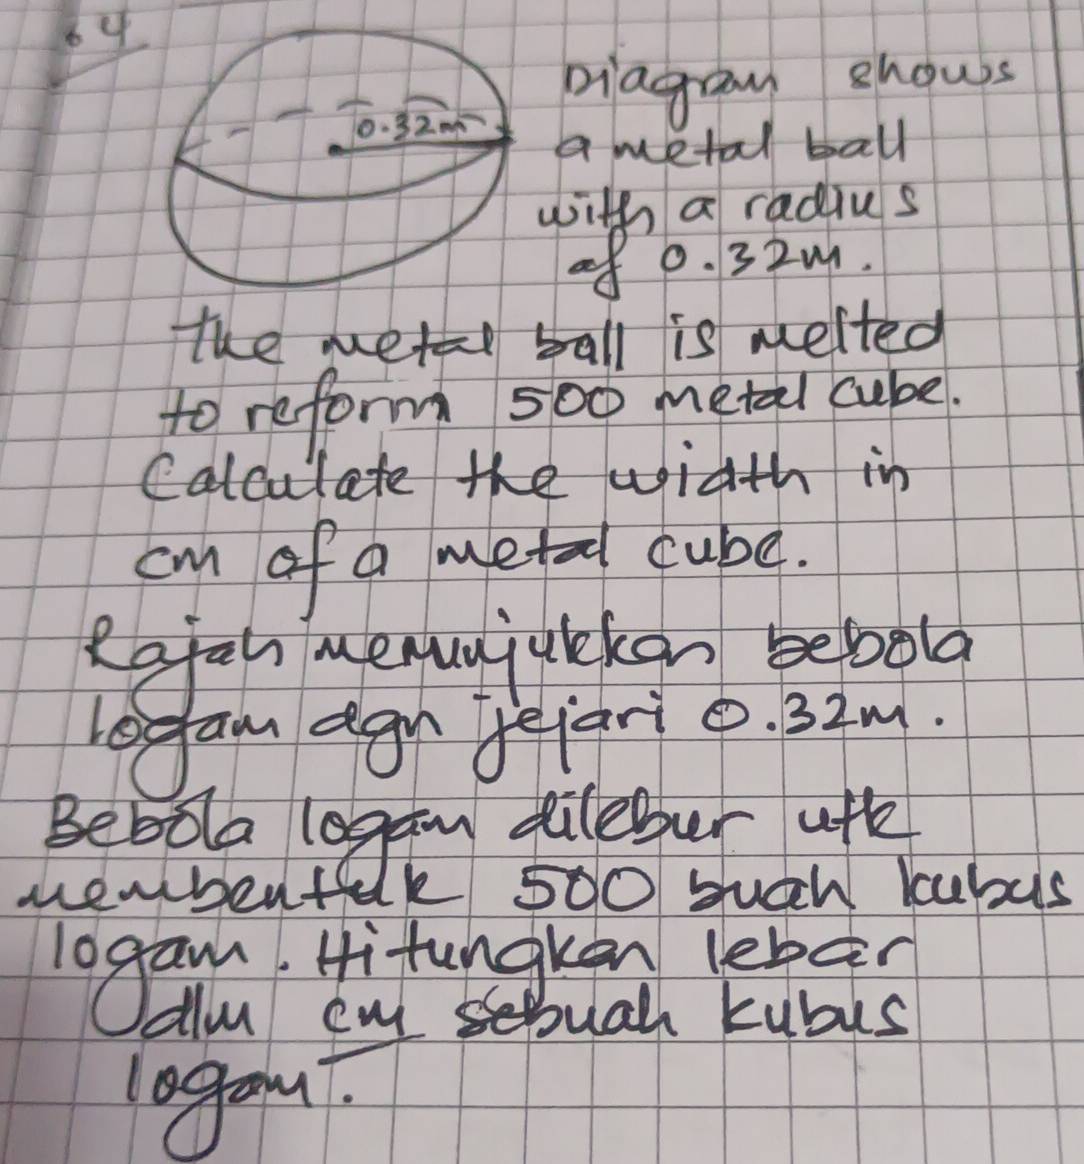 0.32m
Diagram shows
a metal ball
with a radius
of 0.32m.
the metal ball is melted
to reform 500 metal cube.
Calculate the width in
cm of a metal cube.
Rajah menunjukkan bebola
logam dgn jejari 0.32m.
Bebola logam dilebur utk
membentuk 500 buah kubus
logam. Hitungkan lebar
dlm cm sebuah kubus
logam.